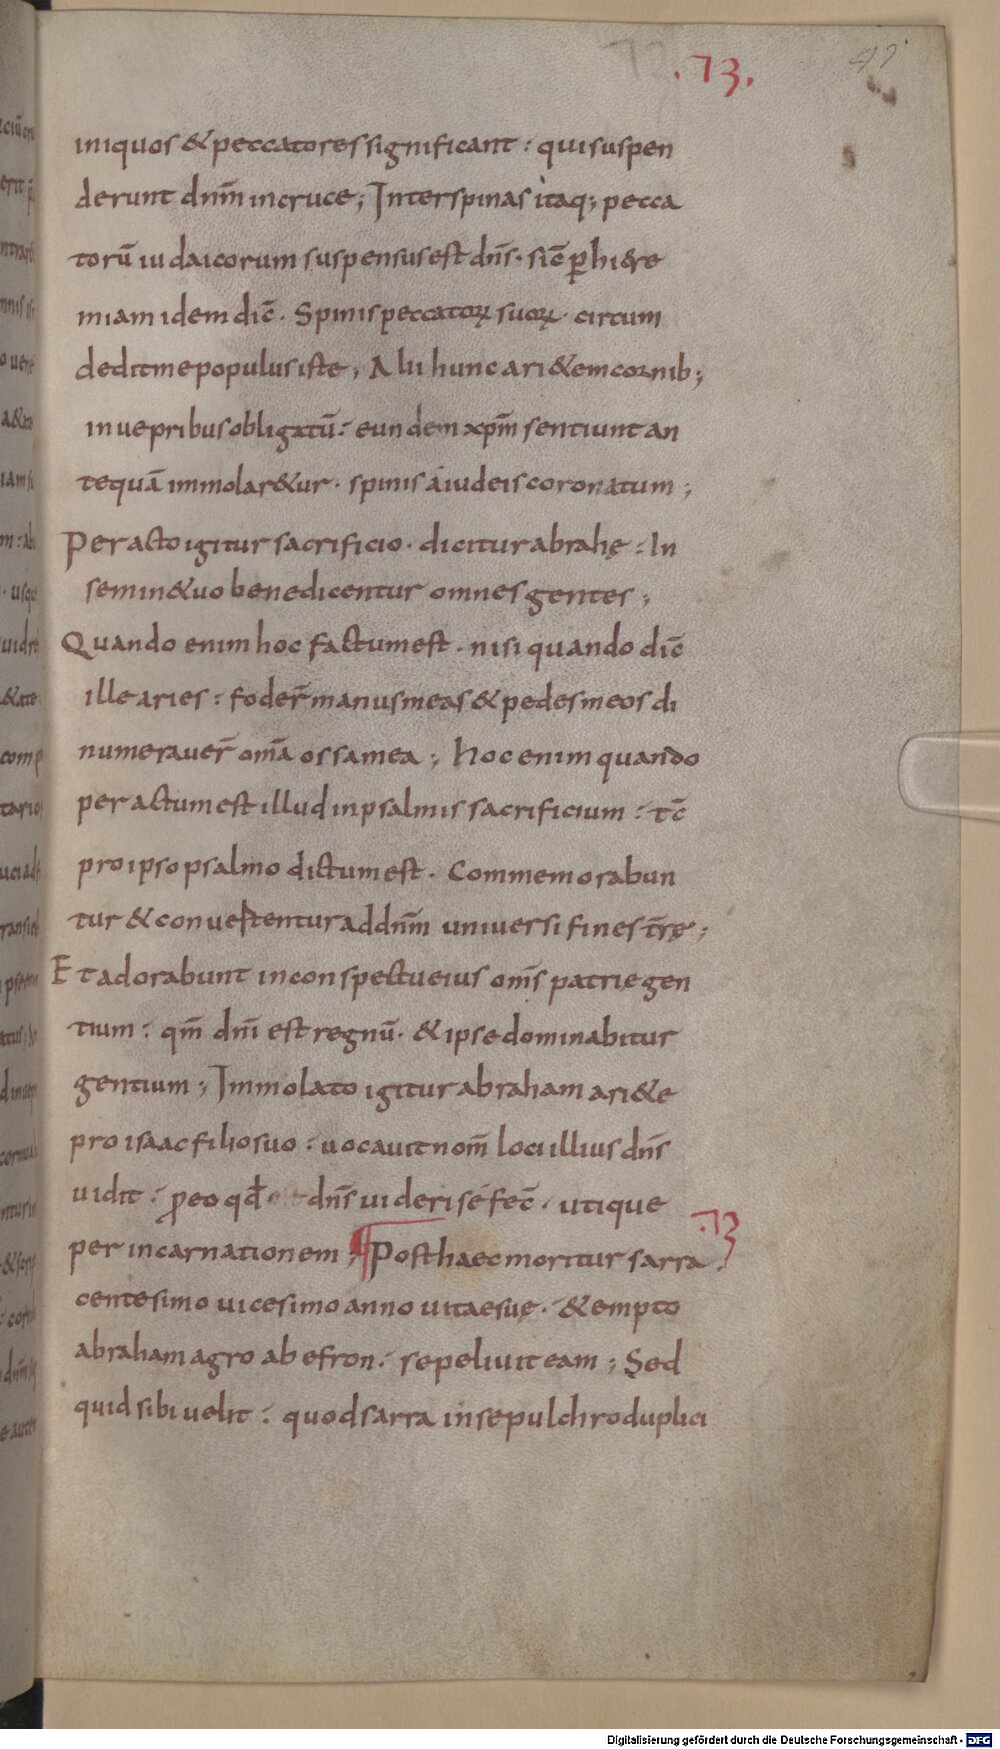 .73.
42
iniquos & peccatores significant : qui suspen
derunt dn̄m in cruce ; Inter spinas itaq; pecca
torū iudaicorum suspensus est dn̄s · sic̄ ꝑ hi&re
miam idem dic̄ · Spinis peccatoꝝ suoꝝ · circum
dedit me populus iste ; Alii hunc ari&em cornib;
in uepribus obligatū : eundem xp̄m sentiunt an
tequā immolar&ur · spinis a iudeis coronatum ;
Peracto igitur sacrificio · dicitur abrahę : In
semin& uo benedicentur omnes gentes ;
Quando enim hoc factum est · nisi quando dic̄
ille aries : foder̄ manus meas & pedes meos di
numerauer̄ om̄a ossa mea ; hoc enim quando
peractum est illud in psalmis sacrificium : tc̄
pro ipso psalmo dictum est · Commemorabun
tur & conuertentur ad dn̄m uniuersi fines tr̄ę ;
Et adorabunt in conspectu eius om̄s patrie gen
tium : qm̄ dn̄i est regnū · & ipse dominabitur
gentium ; Immolato igitur abraham ari&e
pro isaac filio suo : uocauit nom̄ loci illius dn̄s
uidit : ꝓ eo qd̄ dn̄s uideri se fec̄ · utique
per incarnationem ; ¶ Post haec moritur sarra .73
centesimo uicesimo anno uitae suę · & empto
abraham agro ab efron : sepeliuit eam ; Sed
quid sibi uelit : quod sarra in sepulchro duplici
Digitalisierung gefördert durch die Deutsche Forschungsgemeinschaft - DFG